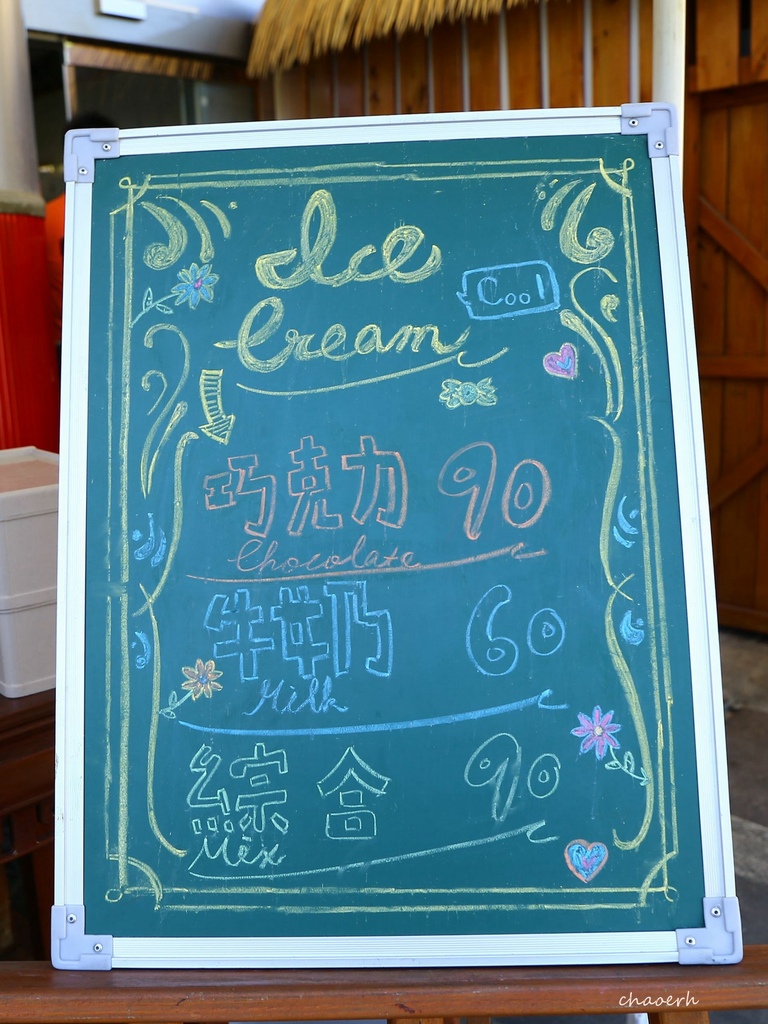 Ice
Cool
Cream
巧克力 90
Chocolate
牛奶 60
Milk
綜合 90
Mix
chaoerh